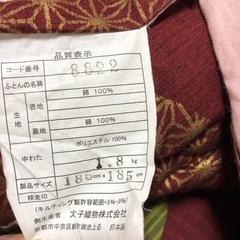 品質表示
コード番号 8822
ふとんの名称
生地 表地 綿 100%
裏地 綿 100%
中わた ポリエステル 100%
1.8 kg
製品サイズ 185cm x 185cm
検査印
(キルティング製許容範囲+5%-3%)
製造者 太子織物株式会社
京都市中京区 日本製